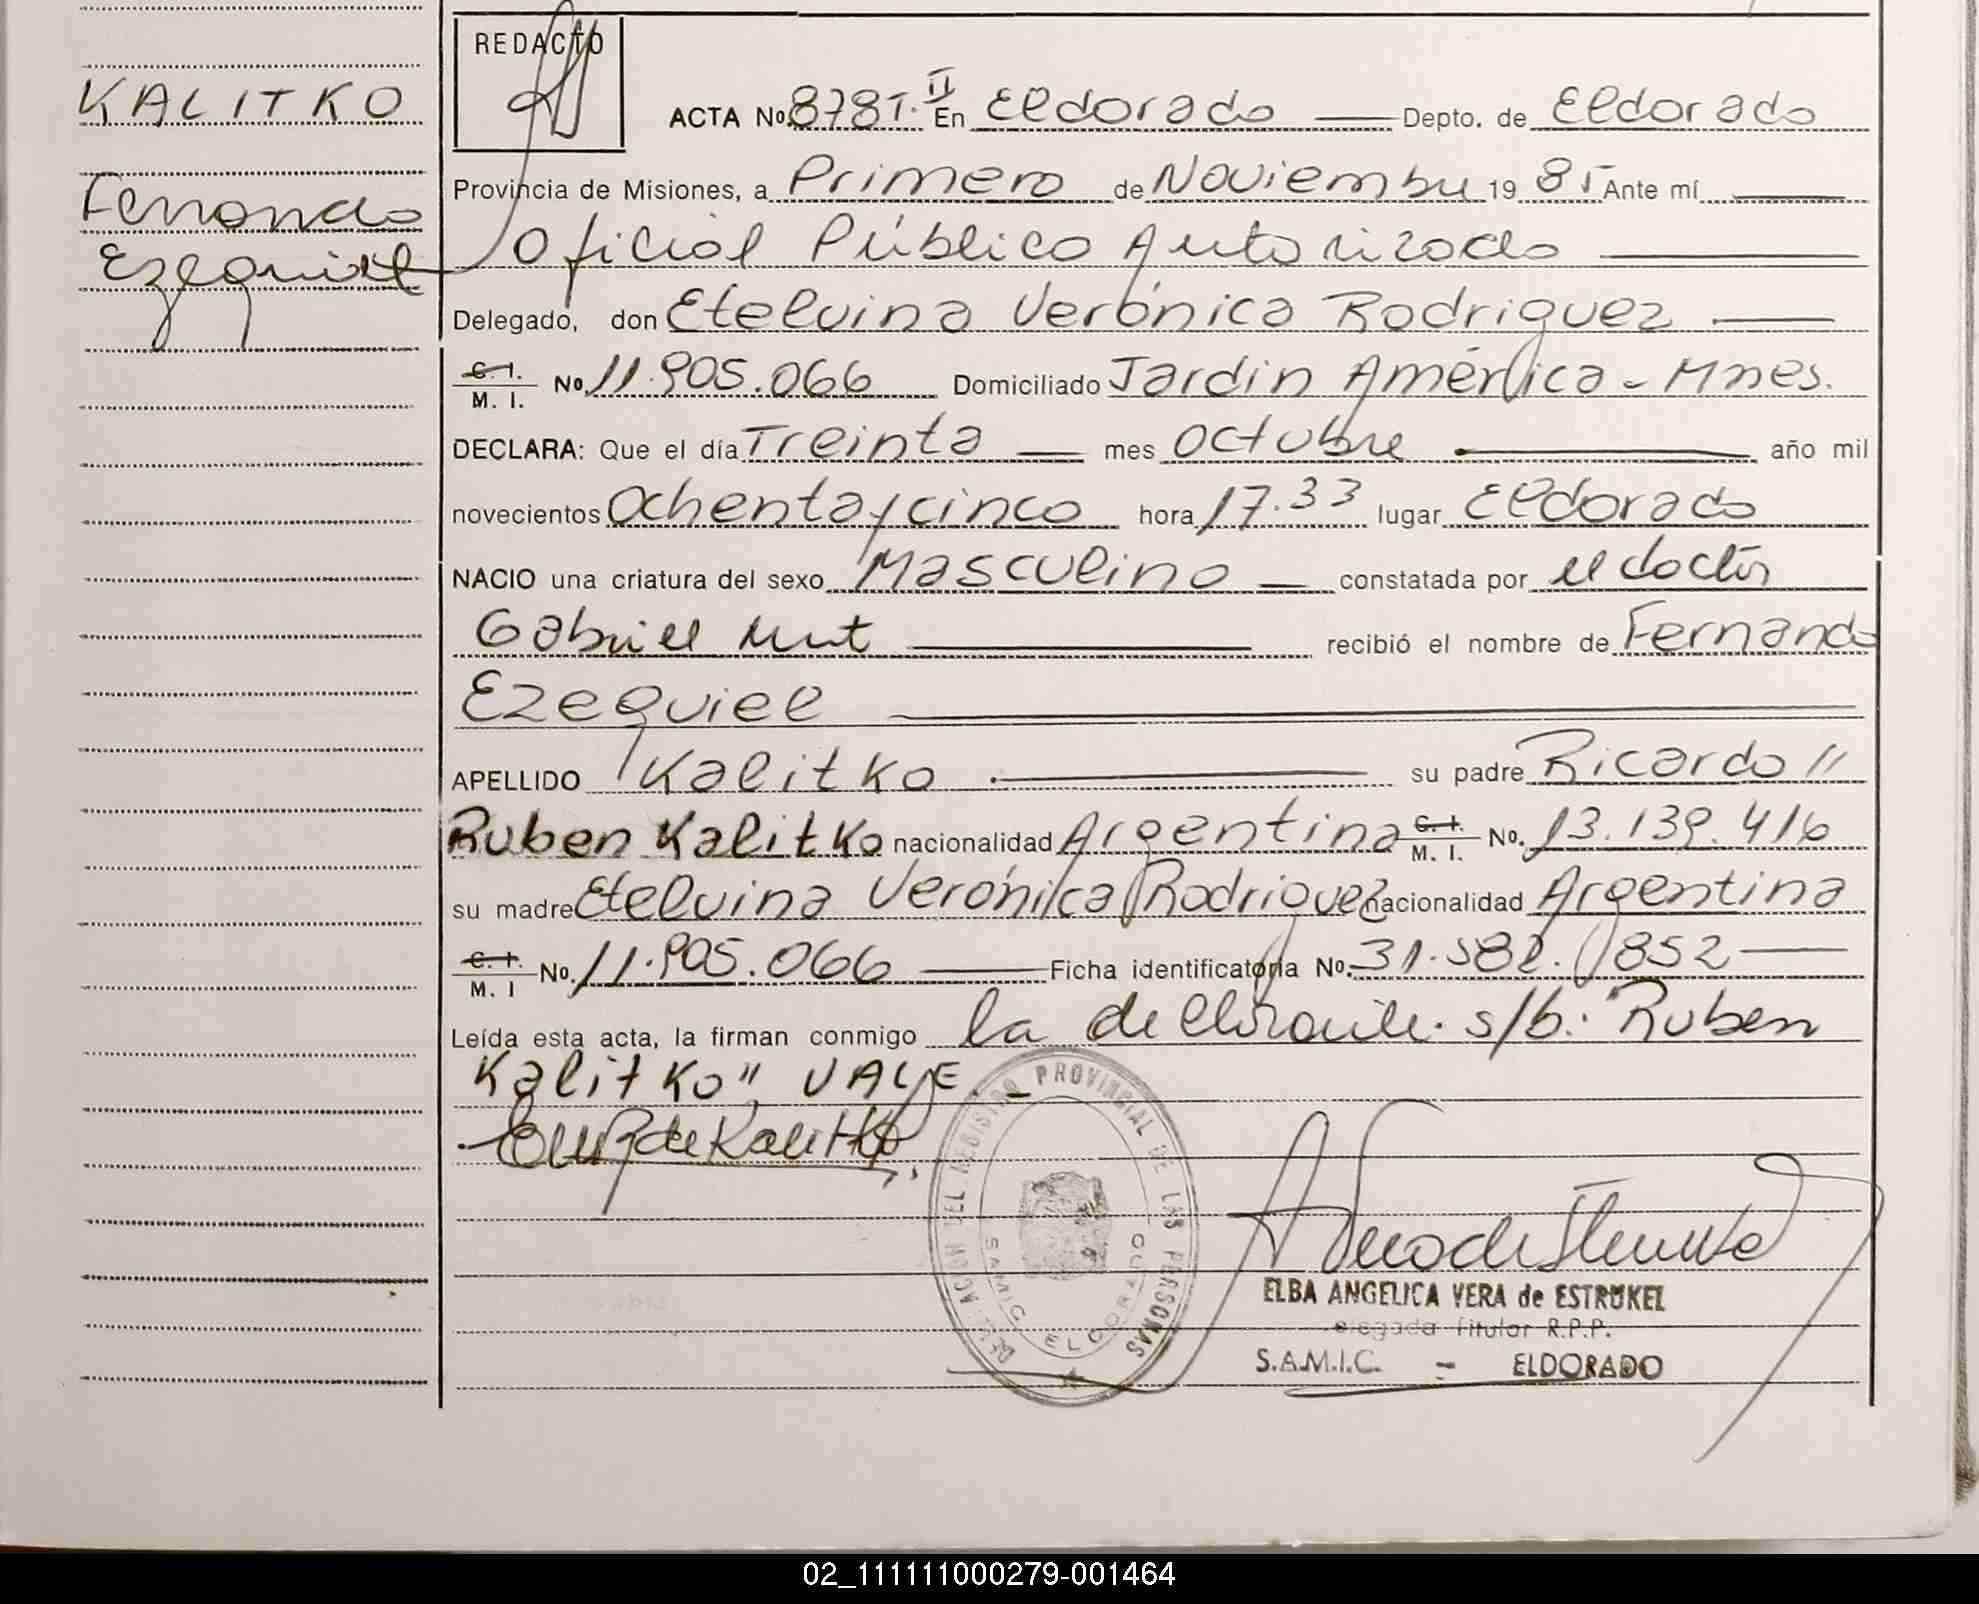 REDACTO
KALITKO
Fernando
Ezequiel
ACTA No. 878 T. II En Eldorado Depto. de Eldorado
Provincia de Misiones, a Primero de Noviembre 19 85 Ante mí
Oficial Público Autorizado
Delegado, don Etelvina Verónica Rodriguez
C. I. M. I. No. 11.905.066 Domiciliado Jardin América - Mnes.
DECLARA: Que el día Treinta mes Octubre año mil
novecientos Ochenta y cinco hora 17.33 lugar Eldorado
NACIO una criatura del sexo Masculino constatada por el doctor
Gabriel Mut recibió el nombre de Fernando
Ezequiel
APELLIDO Kalitko su padre Ricardo //
Ruben Kalitko nacionalidad Argentina C. I. M. I. No. 13.139.416
su madre Etelvina Verónica Rodriguez nacionalidad Argentina
C. I. M. I No. 11.905.066 Ficha identificatoria No. 31.582.852
Leída esta acta, la firman conmigo la declarante. s/b: "Ruben
Kalitko" VALE.
de Kalitko
DELEGACION DEL REGISTRO PROVINCIAL DE LAS PERSONAS
SAMIC ELDORADO
ELBA ANGELICA VERA de ESTRUKEL
Delegada Titular R.P.P.
S.A.M.I.C. - ELDORADO
02_111111000279-001464